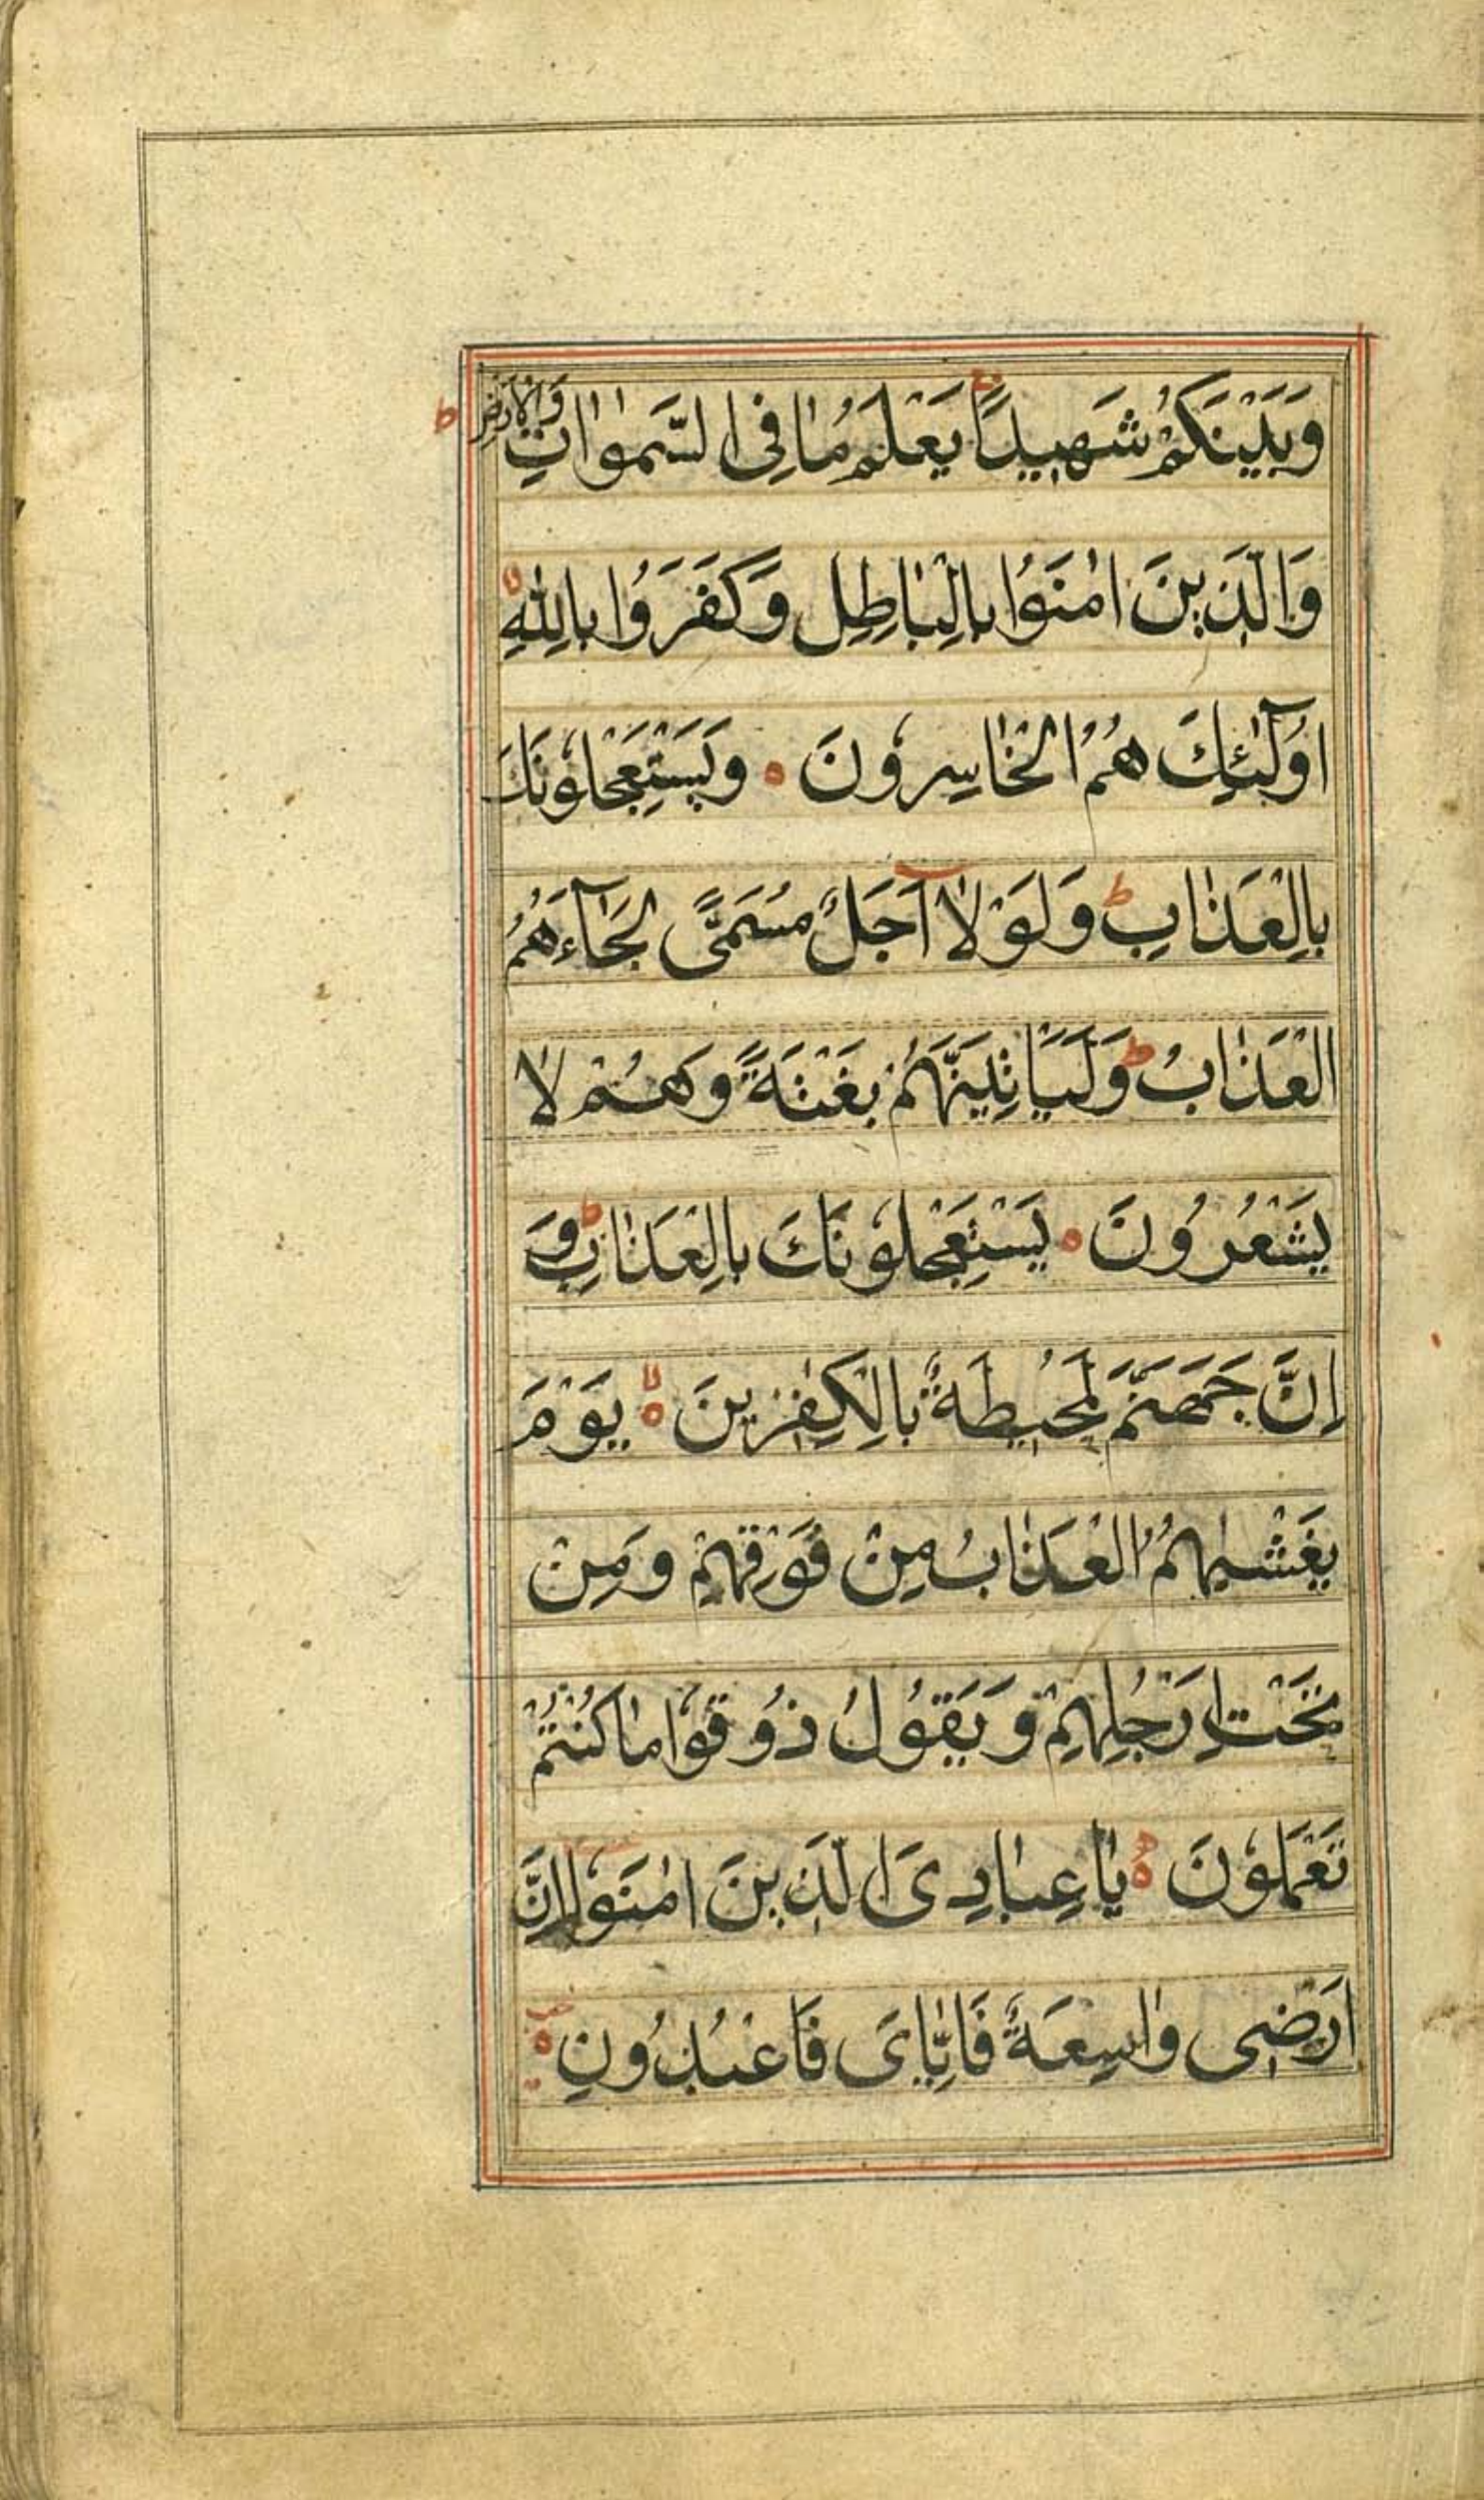 وَبَيْنَكُمْ شَهِيدًا يَعْلَمُ مَا فِى السَّمٰوَاتِ وَالْاَرْضِ ط
وَالَّذِينَ اٰمَنُوا بِالْبَاطِلِ وَكَفَرُوا بِاللّٰهِ لا
اُولٰٓئِكَ هُمُ الْخَاسِرُونَ ه وَيَسْتَعْجِلُونَكَ
بِالْعَذَابِ ط وَلَوْلَا اَجَلٌ مُسَمًّى لَجَآءَهُمُ
الْعَذَابُ ط وَلَيَأْتِيَنَّهُمْ بَغْتَةً وَهُمْ لَا
يَشْعُرُونَ ه يَسْتَعْجِلُونَكَ بِالْعَذَابِ ط وَ
اِنَّ جَهَنَّمَ لَمُحِيطَةٌ بِالْكٰفِرِينَ ه لا يَوْمَ
يَغْشٰيهُمُ الْعَذَابُ مِنْ فَوْقِهِمْ وَمِنْ
تَحْتِ اَرْجُلِهِمْ وَيَقُولُ ذُوقُوا مَا كُنْتُمْ
تَعْمَلُونَ ه يَا عِبَادِىَ الَّذِينَ اٰمَنُوا اِنَّ
اَرْضِى وَاسِعَةٌ فَاِيَّاىَ فَاعْبُدُونِ ه